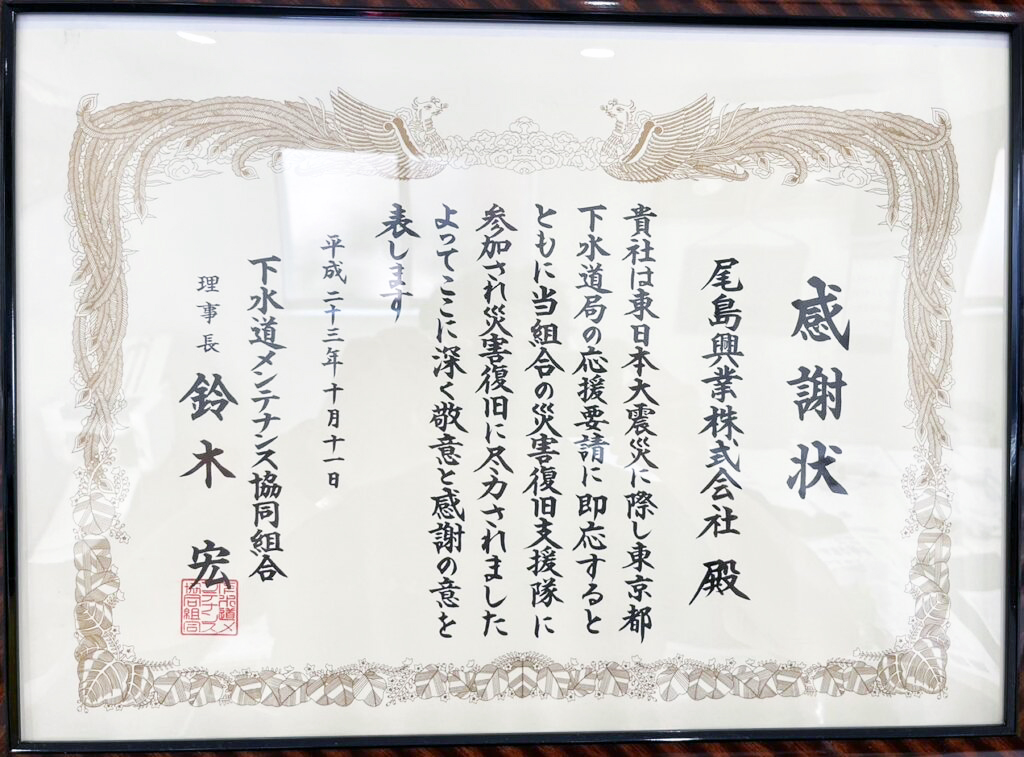 感謝状
尾島興業株式会社 殿
貴社は東日本大震災に際し東京都
下水道局の応援要請に即応すると
ともに当組合の災害復旧支援隊に
参加され災害復旧に尽力されました
よってここに深く敬意と感謝の意を
表します
平成二十三年十月十一日
下水道メンテナンス協同組合
理事長 鈴木 宏